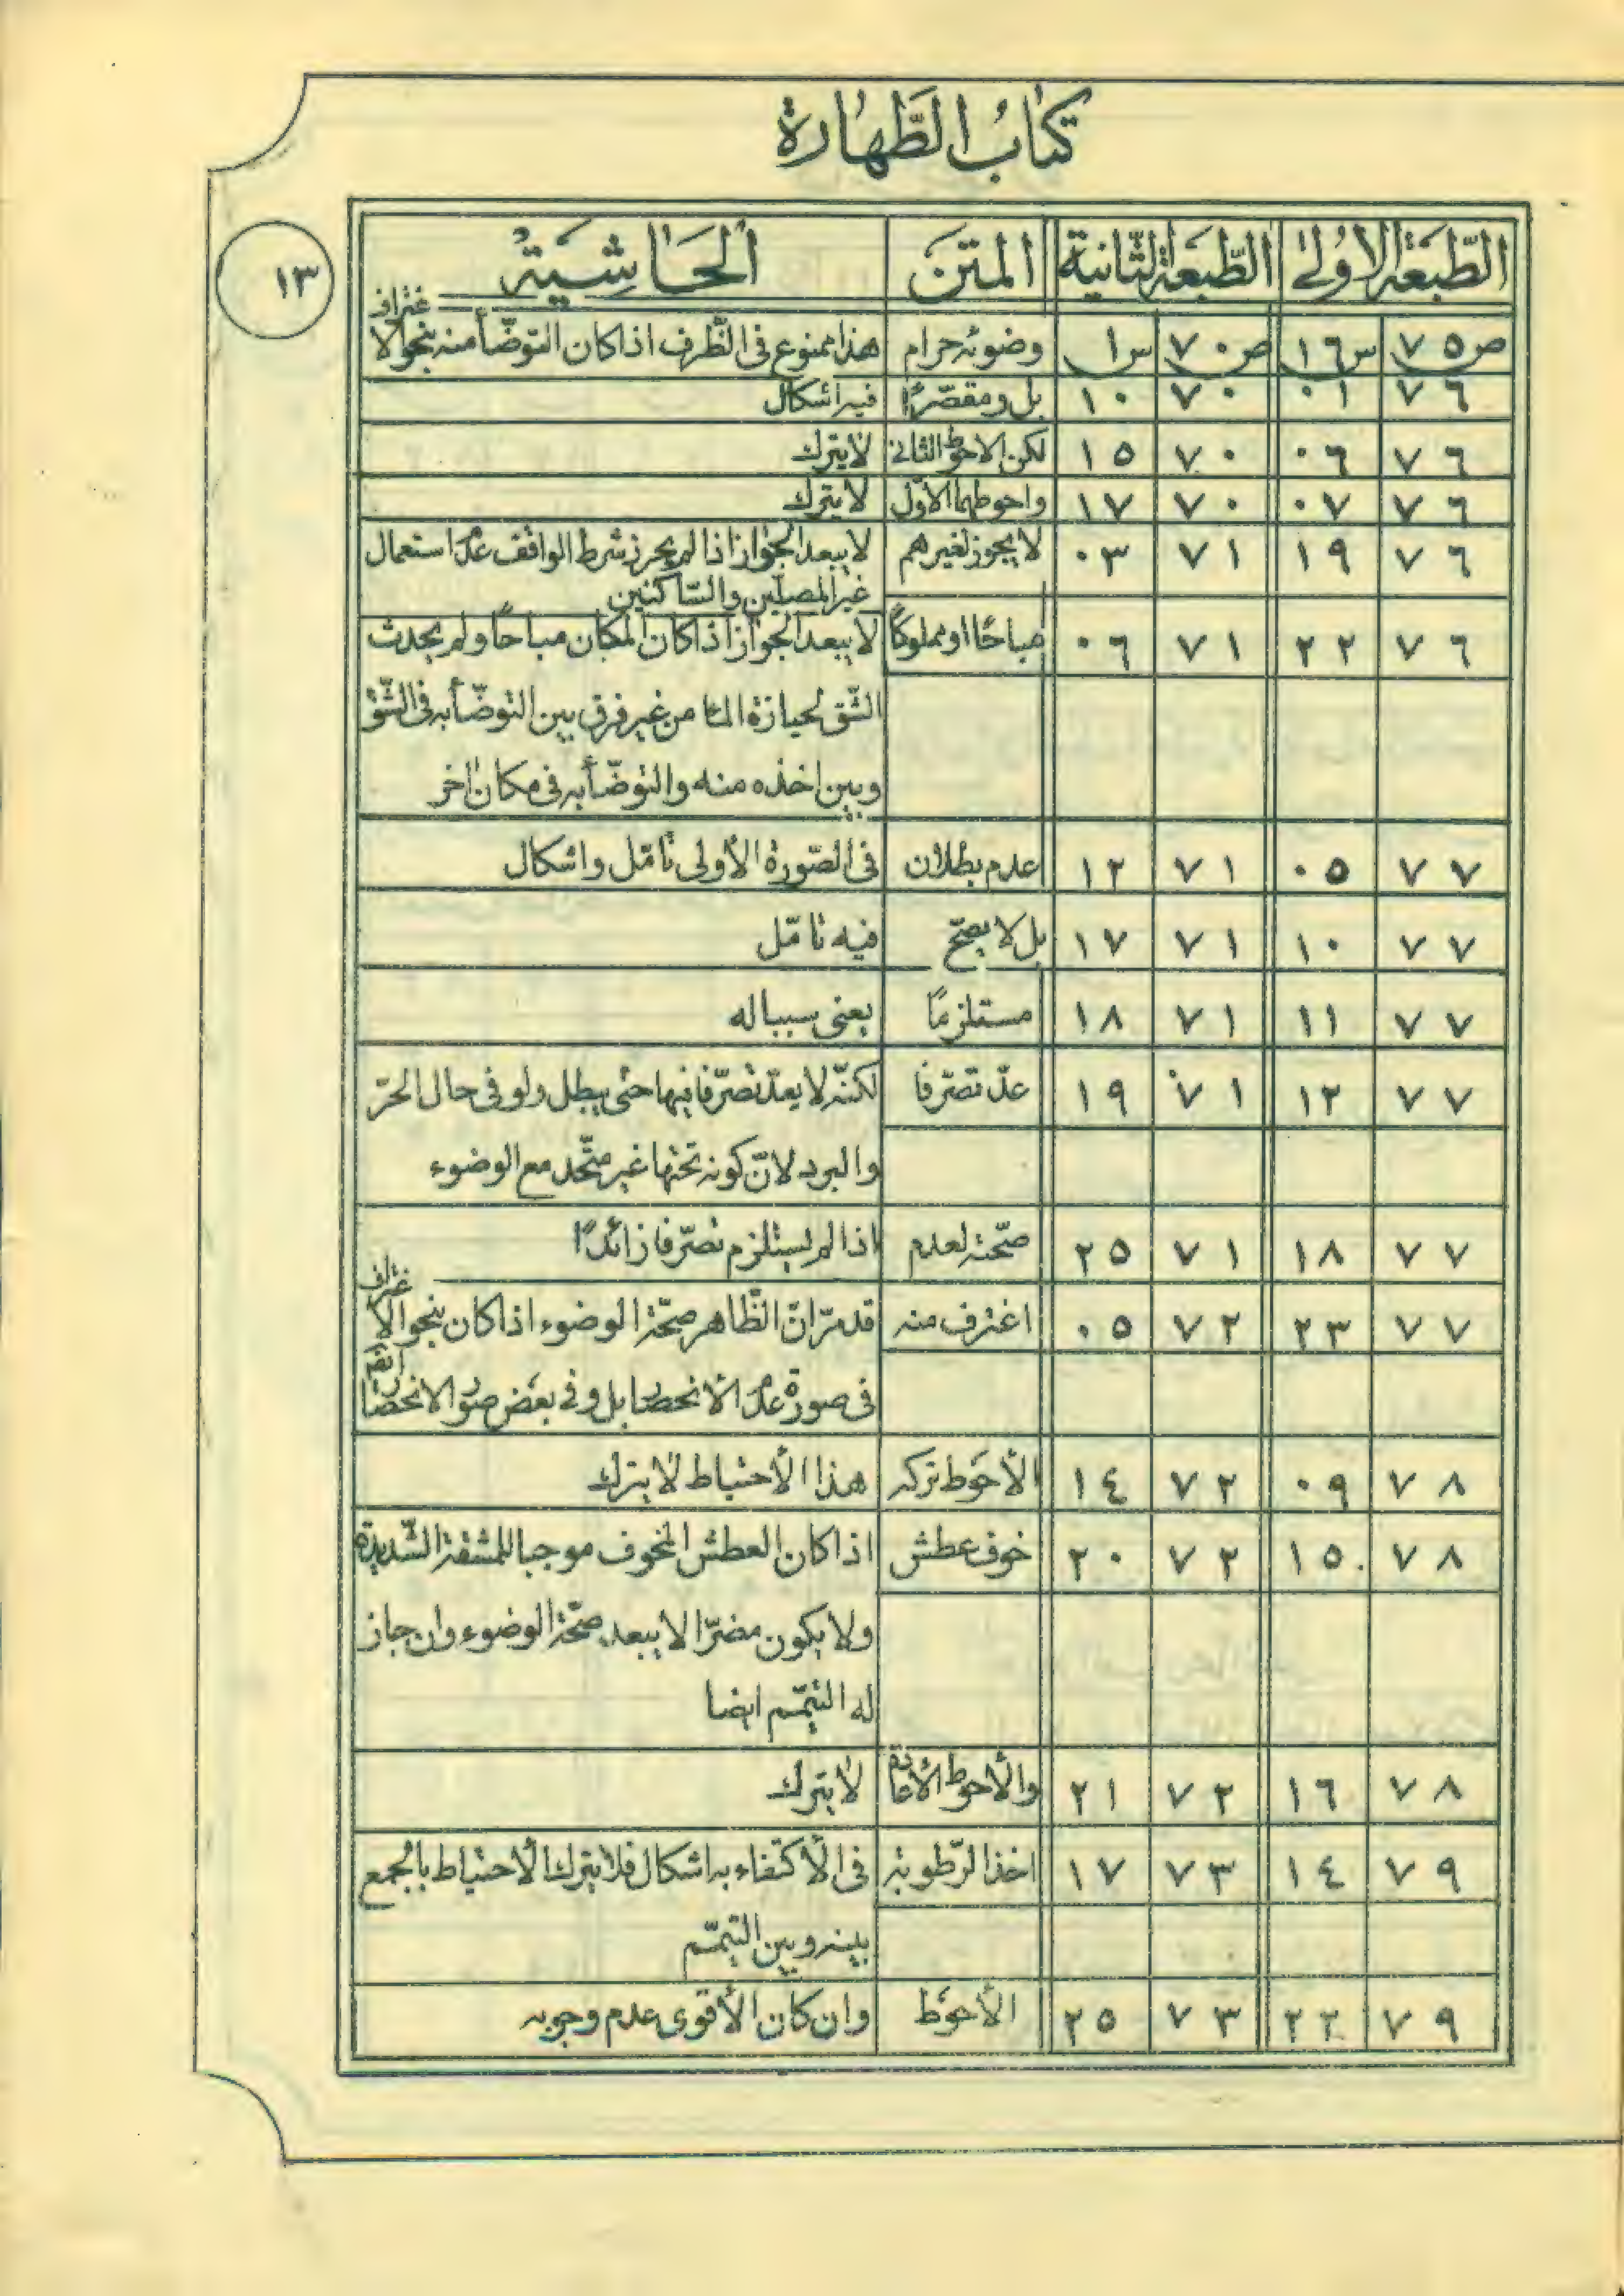 كتاب الطّهارة
١٣
الطّبعة الاولى الطّبعة الثّانية المتن الحاشية
ص٧٥ س١٦ ص٧٠ س١ وضوئه حرام هذا ممنوع فى الظّرف اذا كان التوضّأ منه بنحو الا
غتراف
٧٦ ٠١ ٧٠ ١٠ بل ومقصّرًا فيه اشكال
٧٦ ٠٦ ٧٠ ١٥ لكن الاحوط الثانى لا يترك
٧٦ ٠٧ ٧٠ ١٧ واحوطهما الاوّل لا يترك
٧٦ ١٩ ٧١ ٠٣ لا يجوز لغيرهم لا يبعد الجواز اذا لم يحرز شرط الواقف عدم استعمال
غير المصلّين والسّاكنين
٧٦ ٢٢ ٧١ ٠٦ مباحًا او مملوكًا لا يبعد الجواز اذا كان المكان مباحًا ولم يحدث
الشّق لحيازة الماء من غير فرق بين التوضّأ به فى الشّق
وبين اخذه منه والتوضّأ به فى مكان اخر
٧٧ ٠٥ ٧١ ١٢ عدم بطلان فى الصّورة الأولى تأمّل واشكال
٧٧ ١٠ ٧١ ١٧ بل لا يصحّ فيه تامّل
٧٧ ١١ ٧١ ١٨ مستلزمًا يعنى سببا له
٧٧ ١٢ ٧١ ١٩ عدّ تصرّفا لكنّه لا يعدّ تصرّفا فيها حتى يبطل ولو فى حال الحرّ
والبرد لانّ كونه تحتها غير متّحد مع الوضوء
٧٧ ١٨ ٧١ ٢٥ صحّته لعدم اذا لم يستلزم تصرّفا زائدًا
٧٧ ٢٣ ٧٢ ٠٥ اغترف منه قد مرّ انّ الظّاهر صحّة الوضوء اذا كان بنحو الا
غتراف
فى صورة عدم الانحصار بل وفى بعض صور الانحصار
ايضا
٧٨ ٠٩ ٧٢ ١٤ الأحوط تركه هذا الأحتياط لا يترك
٧٨ ١٥ ٧٢ ٢٠ خوف عطش اذا كان العطش المخوف موجبا للمشقة الشّديدة
ولا يكون مضرّا لا يبعد صحّة الوضوء وان جاز
له التيمّم ايضا
٧٨ ١٦ ٧٢ ٢١ والأحوط الأعادة لا يترك
٧٩ ١٤ ٧٣ ١٧ اخذ الرّطوبة فى الأكتفاء به اشكال فلا يترك الأحتياط بالجمع
بينه وبين التيمّم
٧٩ ٢٢ ٧٣ ٢٥ الأحوط وان كان الأقوى عدم وجوبه